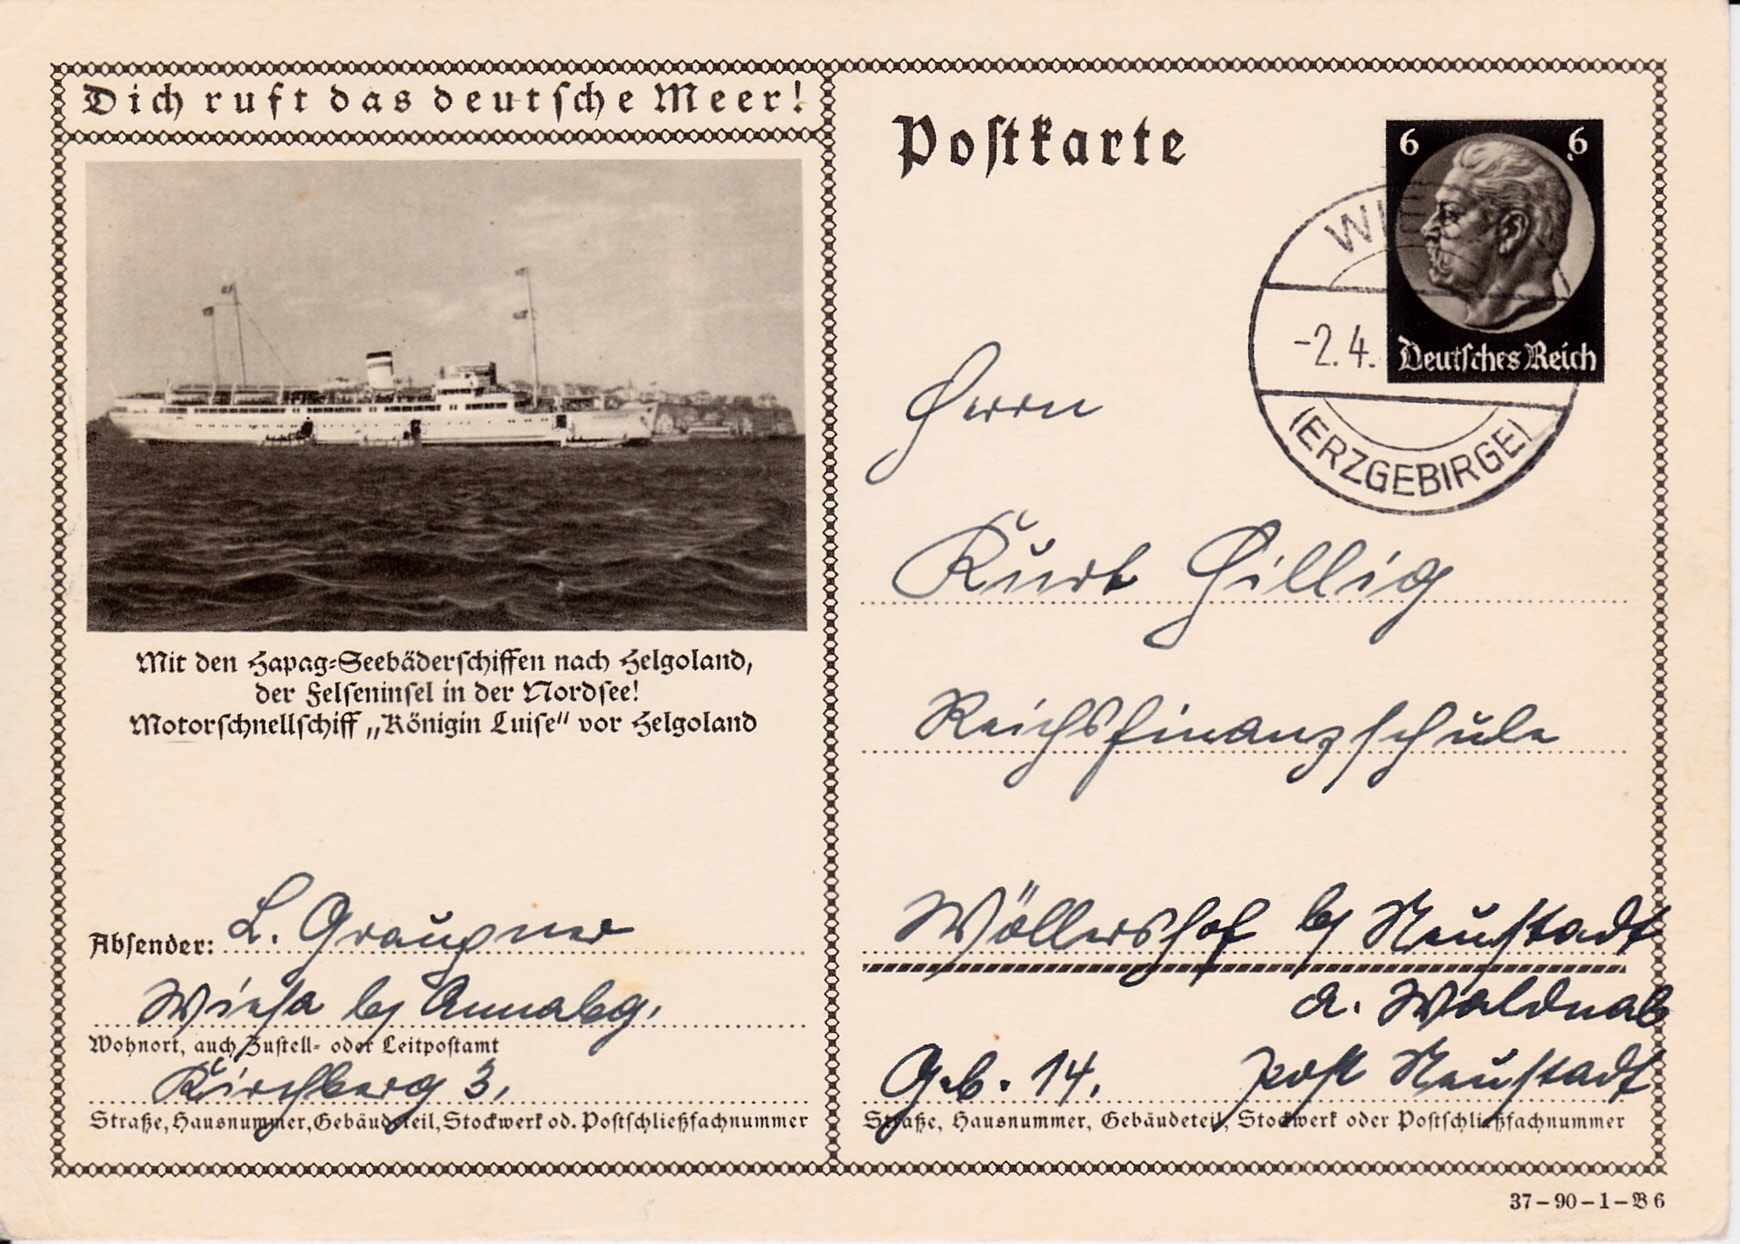 Dich ruft das deutsche Meer!
Mit den Hapag-Seebäderschiffen nach Helgoland,
der Felseninsel in der Nordsee!
Motorschnellschiff „Königin Luise“ vor Helgoland
Absender: L. Graupner
Wiesa b/ Annabg.
Wohnort, auch Zustell- oder Leitpostamt
Kirchberg 3.
Straße, Hausnummer, Gebäudeteil, Stockwerk od. Postschließfachnummer
Postkarte
6 6
Deutsches Reich
WI
-2.4.
(ERZGEBIRGE)
Herrn
Kurt Hillig
Reichsfinanzschule
Wöllershof b/ Neustadt
a. Waldnab
Geb. 14. Post Neustadt
Straße, Hausnummer, Gebäudeteil, Stockwerk oder Postschließfachnummer
37-90-1-B 6